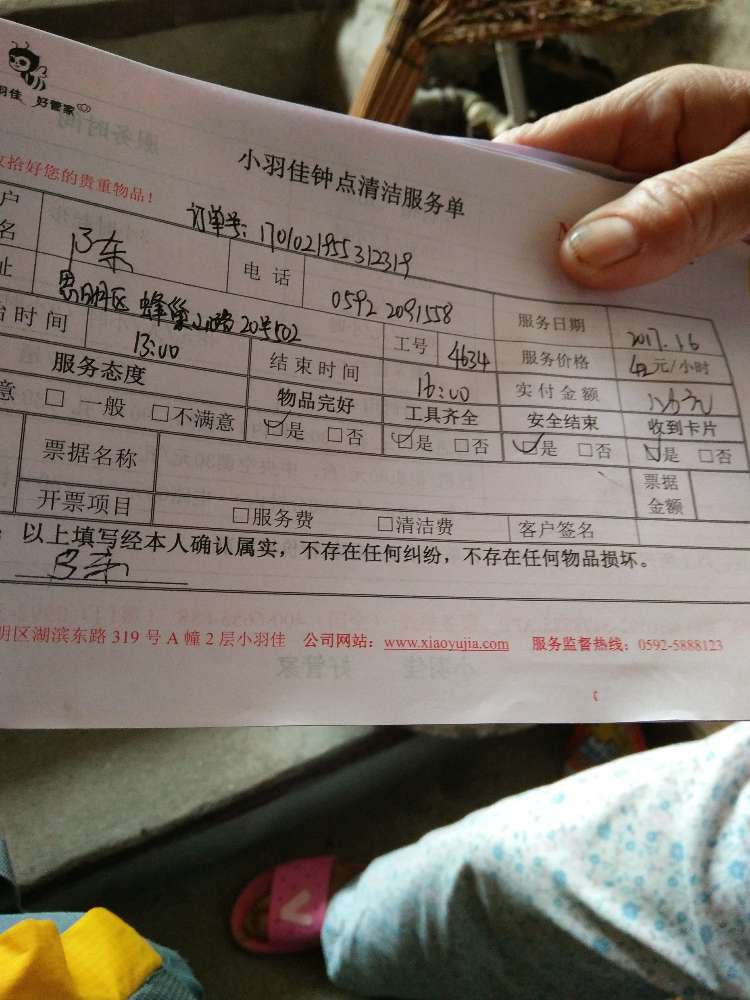 羽佳 好管家
小羽佳钟点清洁服务单
收拾好您的贵重物品！
订单号：170102195312319
户名
电话 0592 2091558 服务日期 2017.1.6
址 思明区 蜂巢山路20号502 工号 4634 服务价格 42元/小时
始时间 13:00 结束时间 16:00 实付金额 126元
服务态度 物品完好 工具齐全 安全结束 收到卡片
意 □一般 □不满意 ☑是 □否 ☑是 □否 ☑是 □否 ☑是 □否
票据名称 票据金额
开票项目 □服务费 □清洁费 客户签名
：以上填写经本人确认属实，不存在任何纠纷，不存在任何物品损坏。
明区湖滨东路 319 号 A 幢 2 层小羽佳 公司网站：www.xiaoyujia.com 服务监督热线：0592-5888123